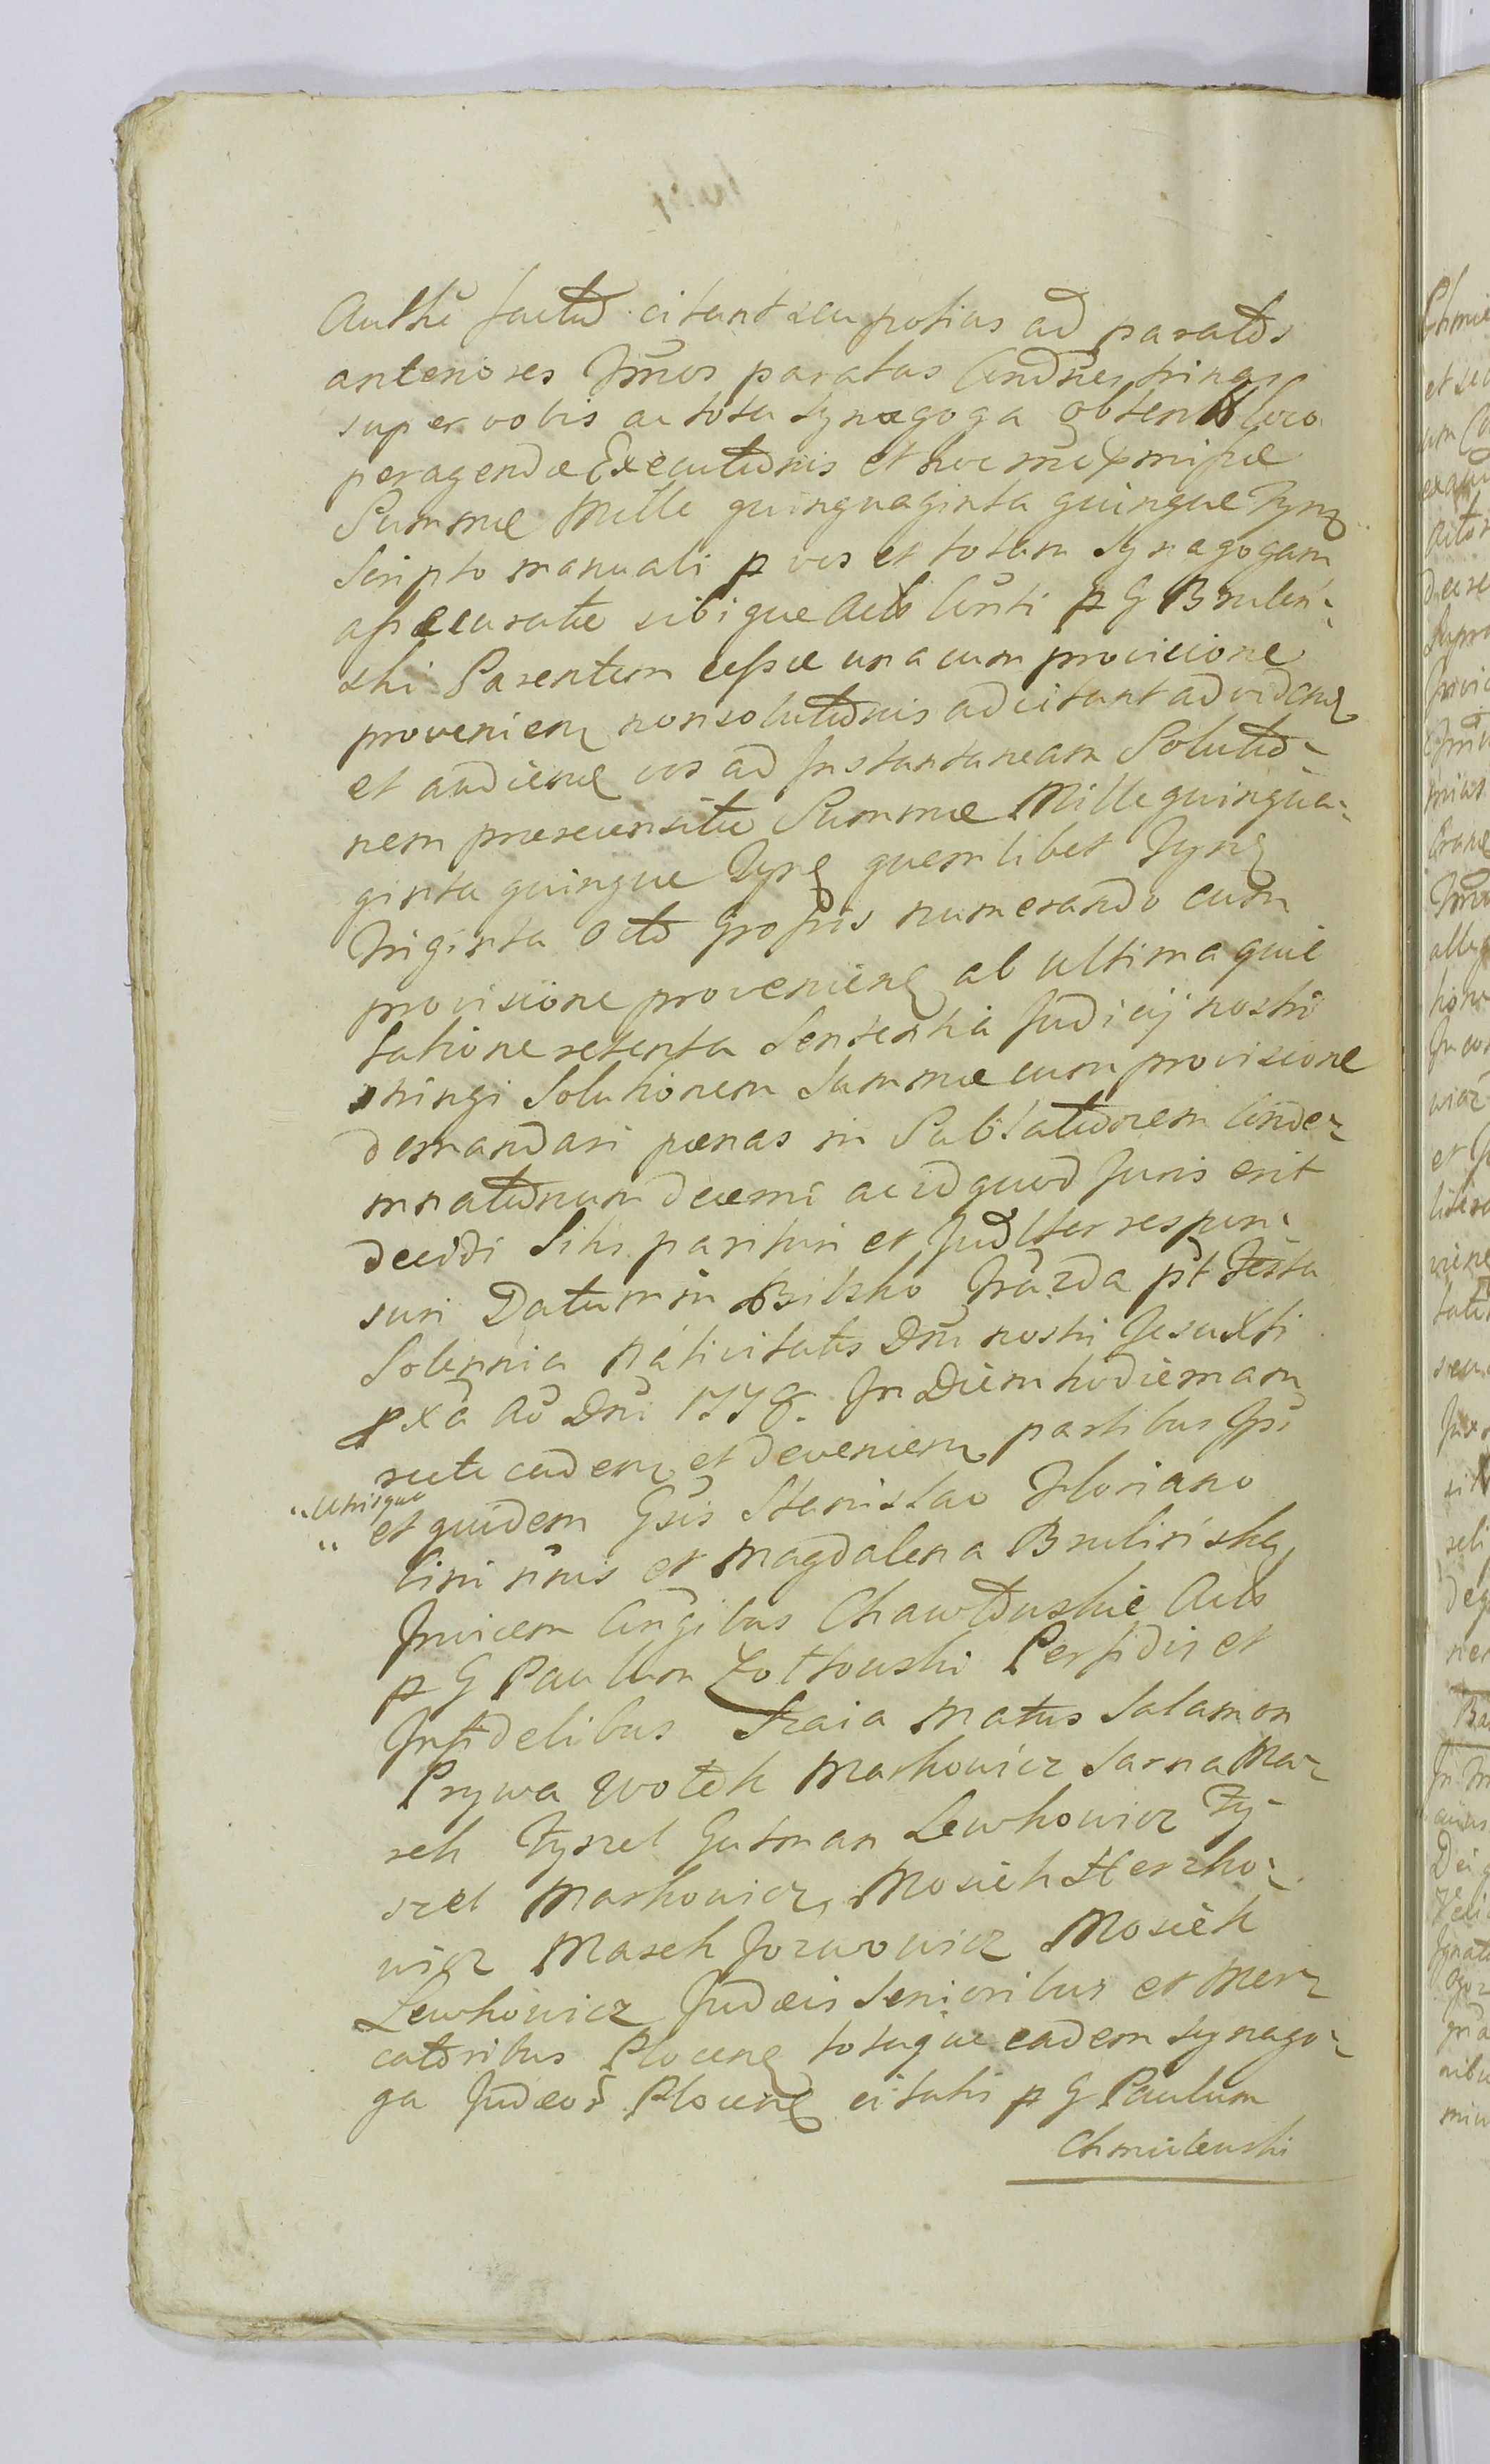 Authẽ factũ citant seu potius ad paratas
anteriores Jr̃nos paratas Cond̃nes trinas
super vobis ac tota Synagoga obtent loco
peragendæ Executionis et hoc rñe præmissæ
Summæ Mille quinquaginta quinque Tynf
Scripto manuali p vos et totam Synagogam
assecuratæ sibique Actõ p G Brulin-
ski Parentem cessæ una cum provisione
provenien non solutionis adcitant ad viden
et audien vos ad Instantaneam Solutio-
nem præcensitæ Summæ Mille quinqua-
ginta quinque Tynf quemlibet Tynf
triginta octo Grossis numerando cum
provisione provenien ab ultima quie
tatione retenta Sententia Judicij nostri
stringi Solutionem Summæ cum provisione
demandari pœnas in Sublationem Conde-
mnationum decerni ac id quod Juris erit
decidi Sitis parituri et Judlter respon-
suri Datum in Bilsko p̃t Festa
Solennia Nativitatis Dñi nostri Jesu Xti
pxã Aõ Dñi 1778. In Diem hodiernam
recte caden et devenien partibus Ipsi
utrisque
et quidem Gsis Stanislao Floriano
bini nñis et Magdalena Brulinska
Invicem Conjgibus Chawłowskie Actõ
p G Paulum Żółtowski Perfidis et
Infidelibus Szaia Matus Salamon
Prywa Wołek Markowicz Sarna Mar-
rek Fyszel Gutman Lewkowicz Fy-
szel Markowicz, Mosiek Herszko-
wicz Masek Jozwowicz Mosiek
Lewkowicz Judæis Senioribus et Mer-
catoribus Plocen totaque eadem Synago-
ga Judæor Plocen citatis p G Paulum
Chmielewski